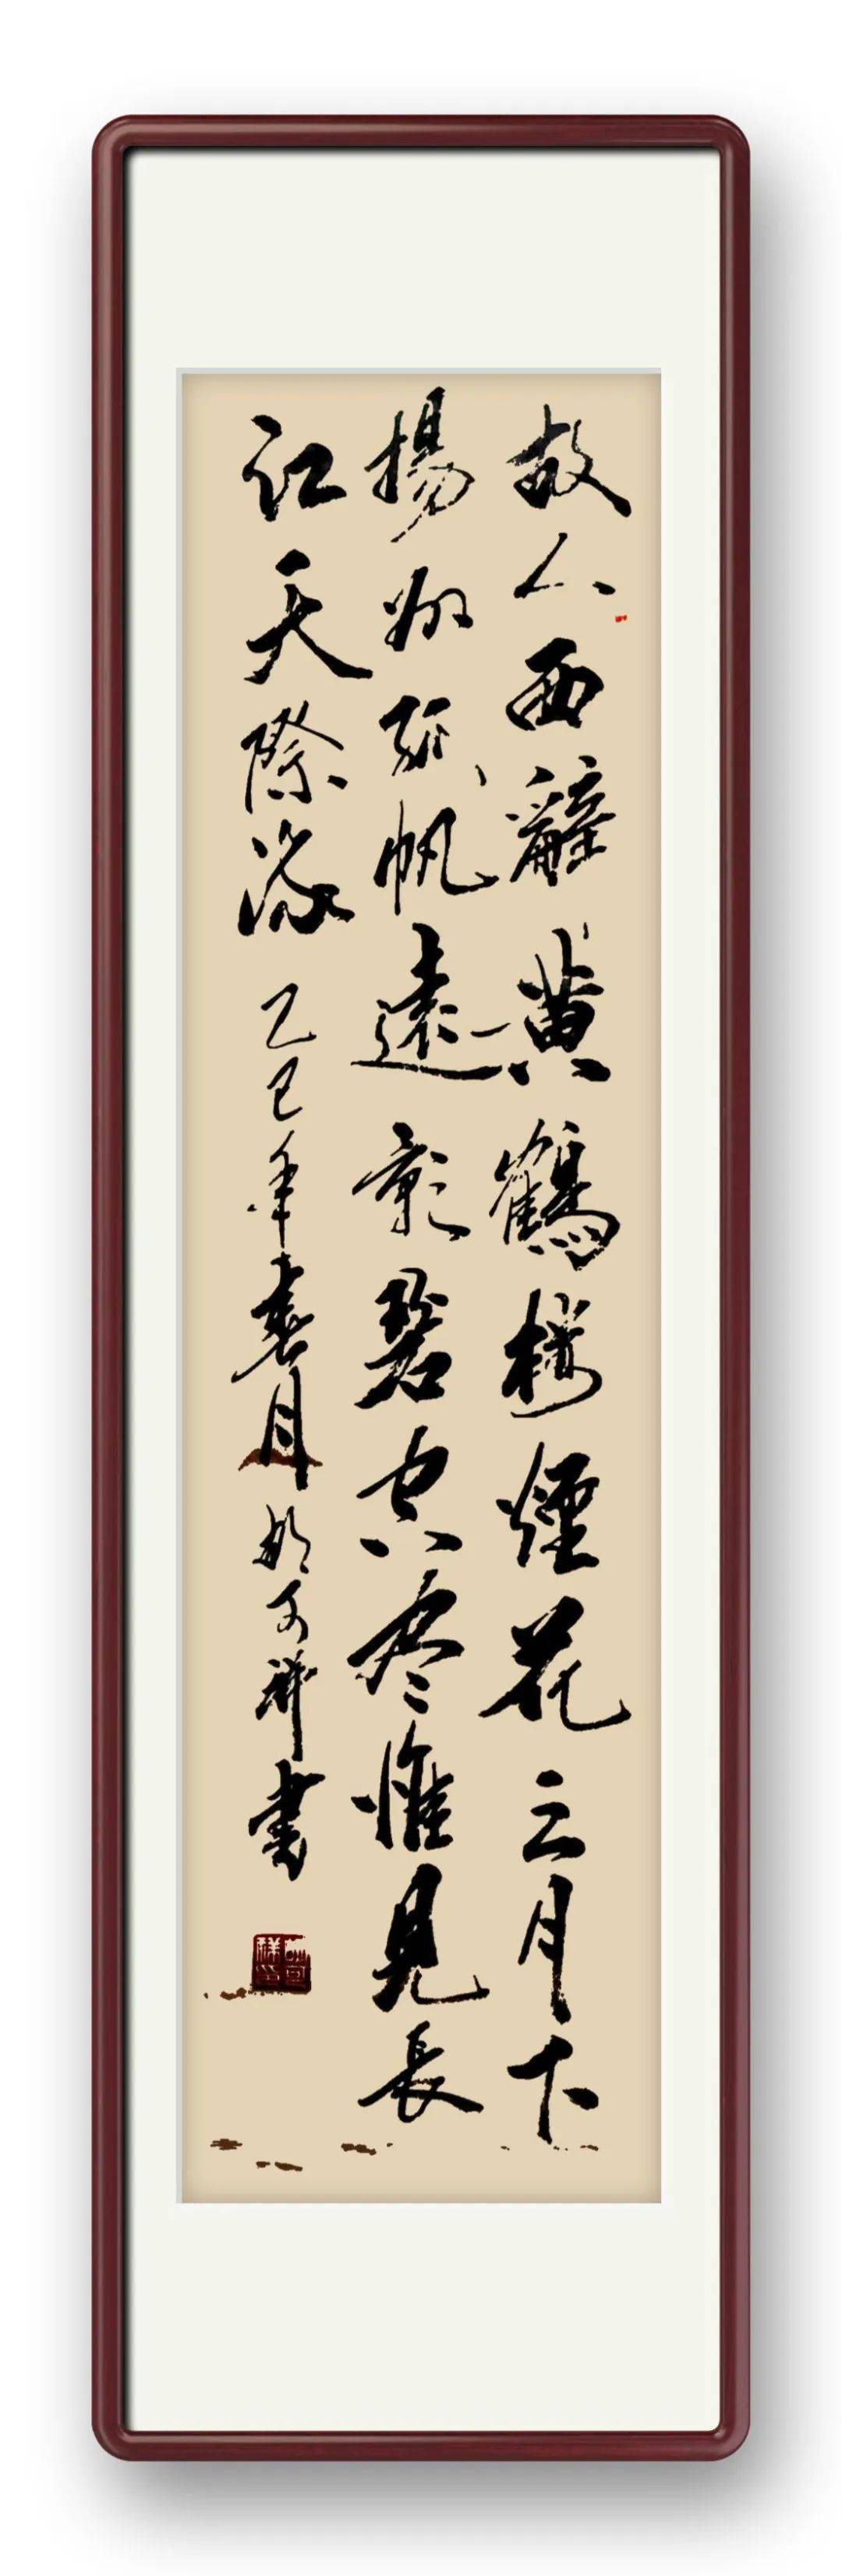 故人西辭黄鶴楼煙花三月下
揚州孤帆遠影碧空尽惟見長
江天際流
乙巳年春月 书